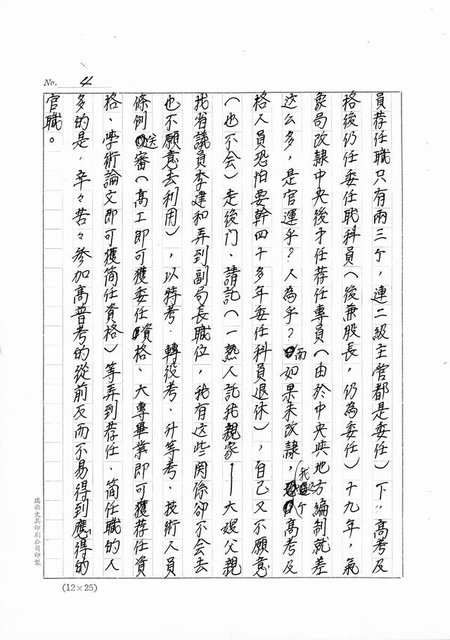 No. 4
員荐任職只有兩三个，連二級主管都是委任）下，高考及
格後仍任委任职科員（後兼股長，仍為委任）十九年，氣
象局改隸中央後才任荐任專員（由於中央與地方編制就差
这么多，是官運乎？人為乎？而如果未改隸，我這个高考及
格人員恐怕要幹四十多年委任科員退休），自己又不願意
（也不会）走後门、請託（一熟人託我親家——大媳父親
我省議員李建和弄到副局長職位，我有这些関係卻不会去
也不願意去利用），以特考．轉役考．升等考、技術人員
條例送審（高工即可獲委任資格、大專畢業即可獲荐任資
格、學術論文即可獲简任資格）等弄到荐任、简任職的人
多的是，辛々苦々參加高普考的從前反而不易得到應得的
官職。
(12×25)